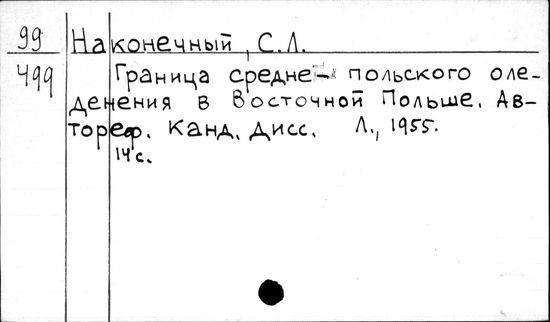 99 Наконечный, С.Л.
499 Граница средне- польского оле-
денения в Восточной Польше. Ав-
тореф. Канд. Дисс. Л., 1955.
14 с.